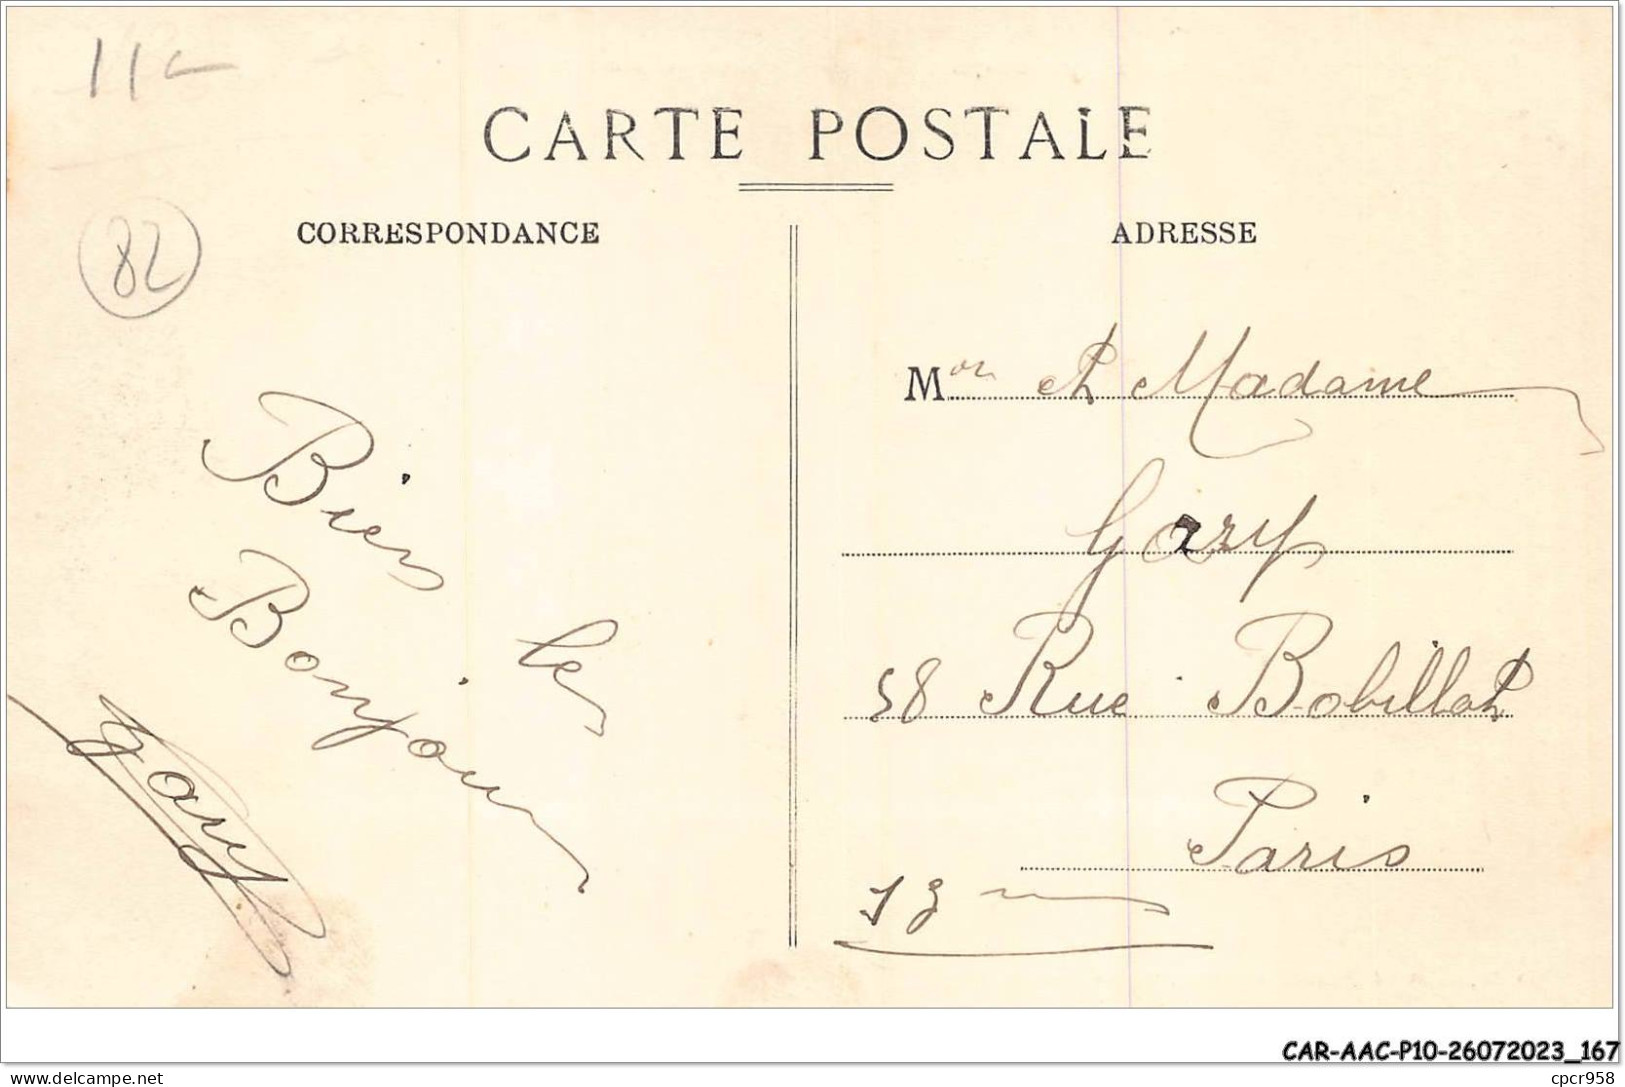 11-
CARTE POSTALE
82
CORRESPONDANCE
Bien
les
Bonjour
Gary
ADRESSE
Mon et Madame
Gary
58 Rue Bobillot
Paris
13
CAR-AAC-P10-26072023_167
delcampe.net
cpcr958